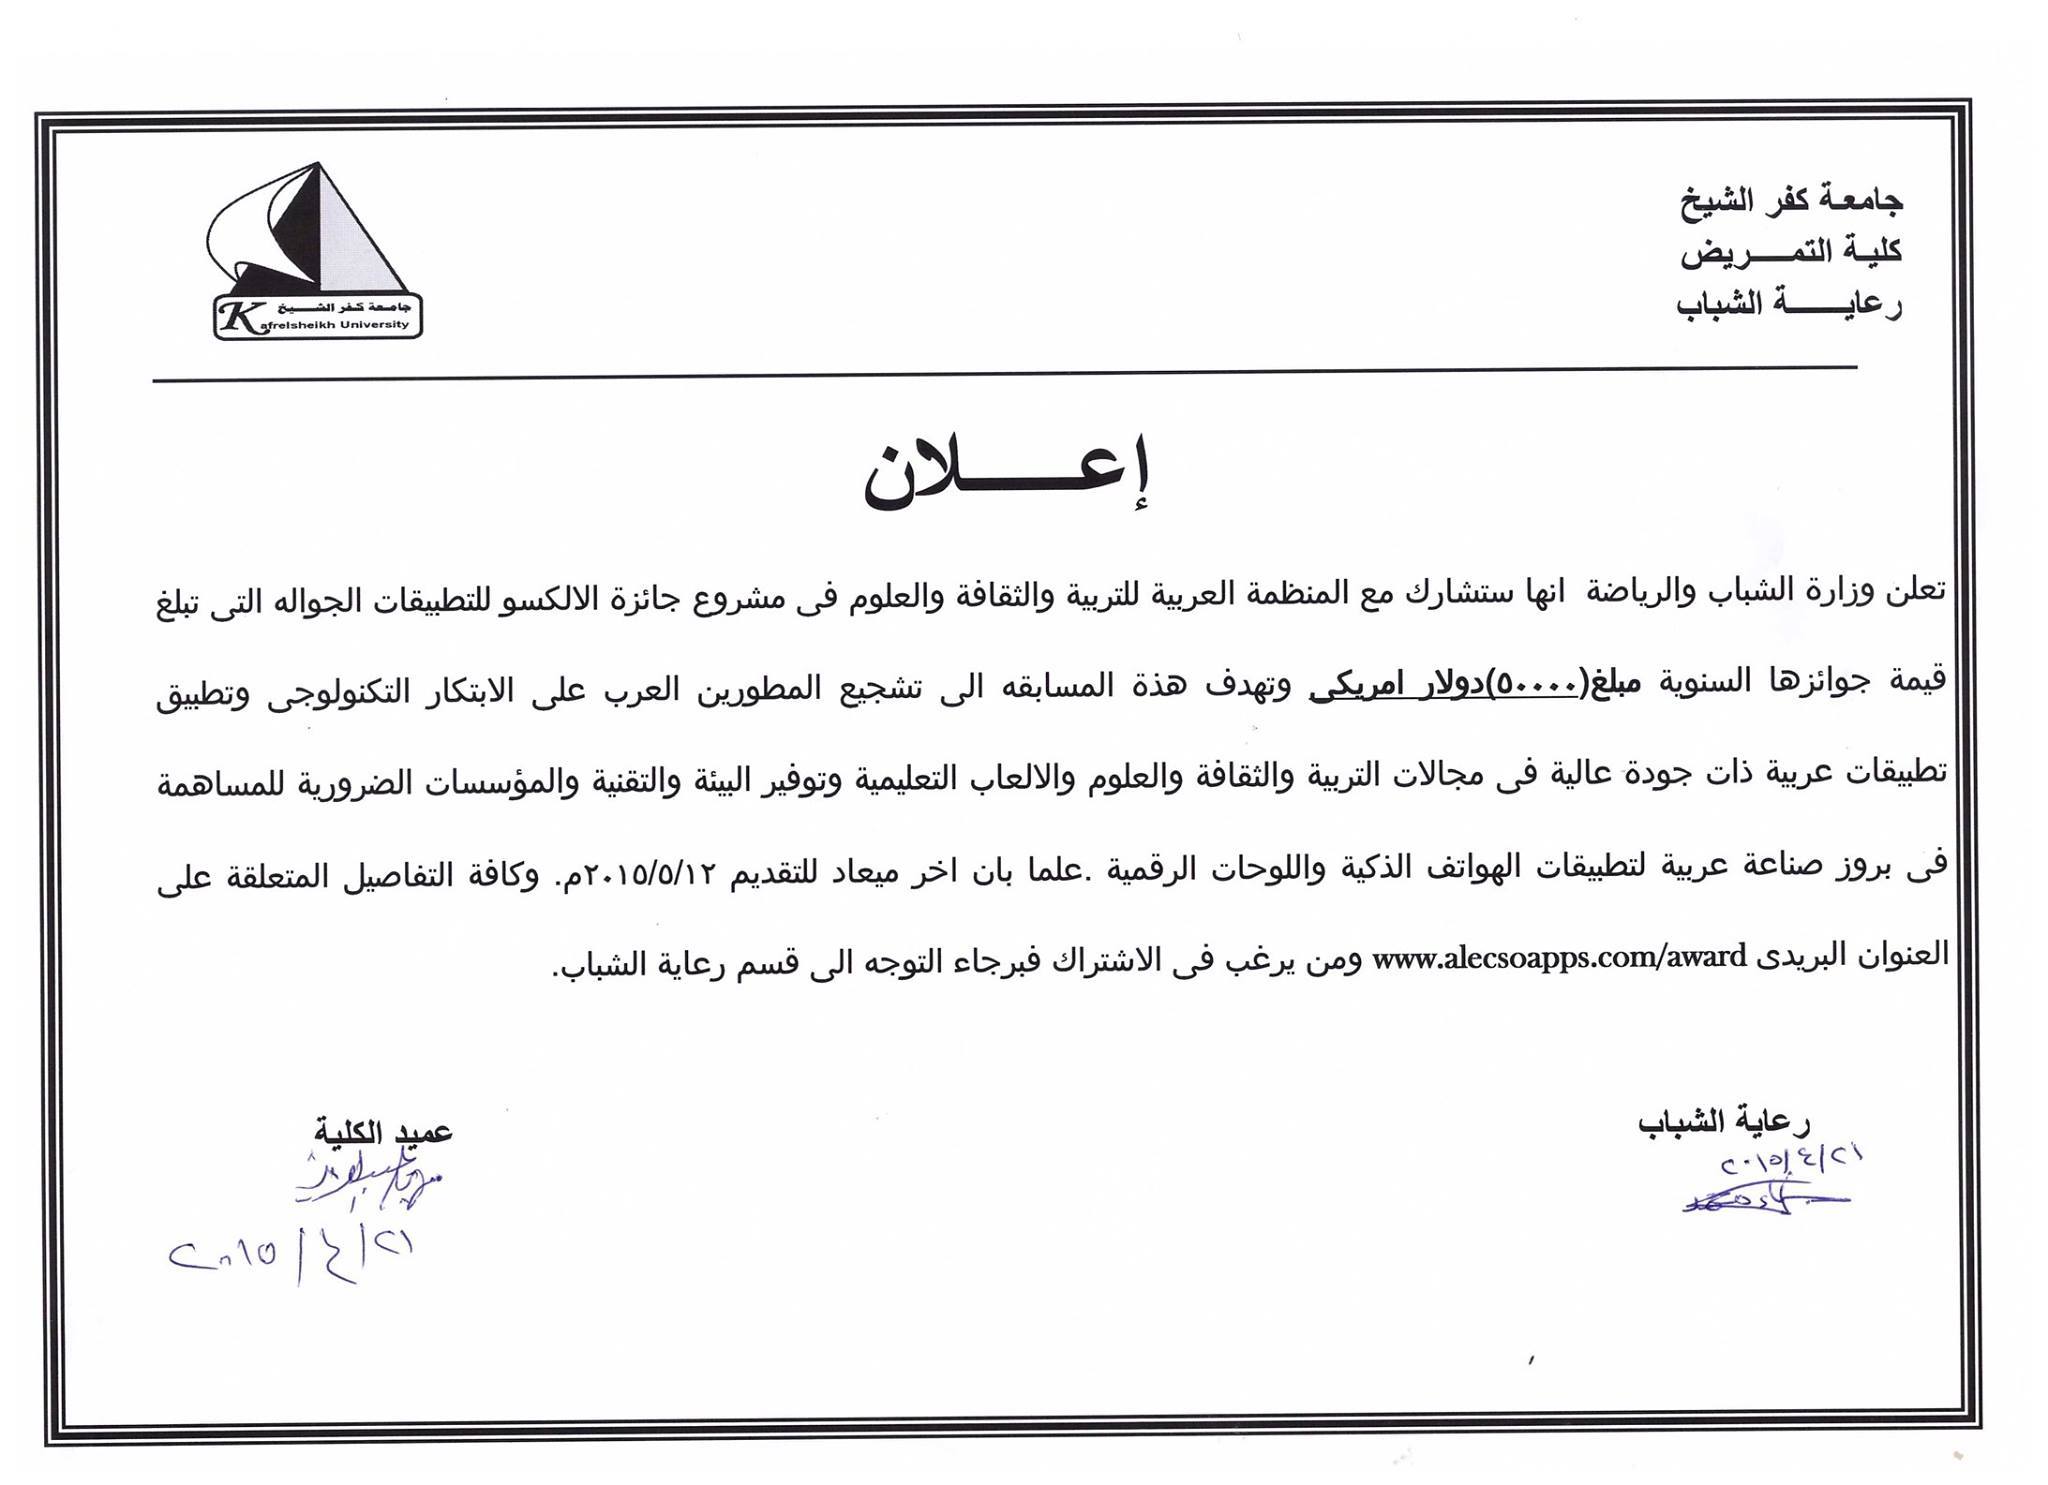 جامعة كفر الشيخ
كلية التمـــريض
رعايـــــة الشباب
جامعة كفر الشـــيخ
Kafrelsheikh University
إعـــــلان
تعلن وزارة الشباب والرياضة انها ستشارك مع المنظمة العربية للتربية والثقافة والعلوم فى مشروع جائزة الالكسو للتطبيقات الجواله التى تبلغ
قيمة جوائزها السنوية مبلغ(٥٠٠٠٠)دولار امريكى وتهدف هذة المسابقه الى تشجيع المطورين العرب على الابتكار التكنولوجى وتطبيق
تطبيقات عربية ذات جودة عالية فى مجالات التربية والثقافة والعلوم والالعاب التعليمية وتوفير البيئة والتقنية والمؤسسات الضرورية للمساهمة
فى بروز صناعة عربية لتطبيقات الهواتف الذكية واللوحات الرقمية .علما بان اخر ميعاد للتقديم ٢٠١٥/٥/١٢م. وكافة التفاصيل المتعلقة على
العنوان البريدى www.alecsoapps.com/award ومن يرغب فى الاشتراك فبرجاء التوجه الى قسم رعاية الشباب.
رعاية الشباب
٢٠١٥/٤/٢١
عميد الكلية
٢٠١٥/٤/٢١